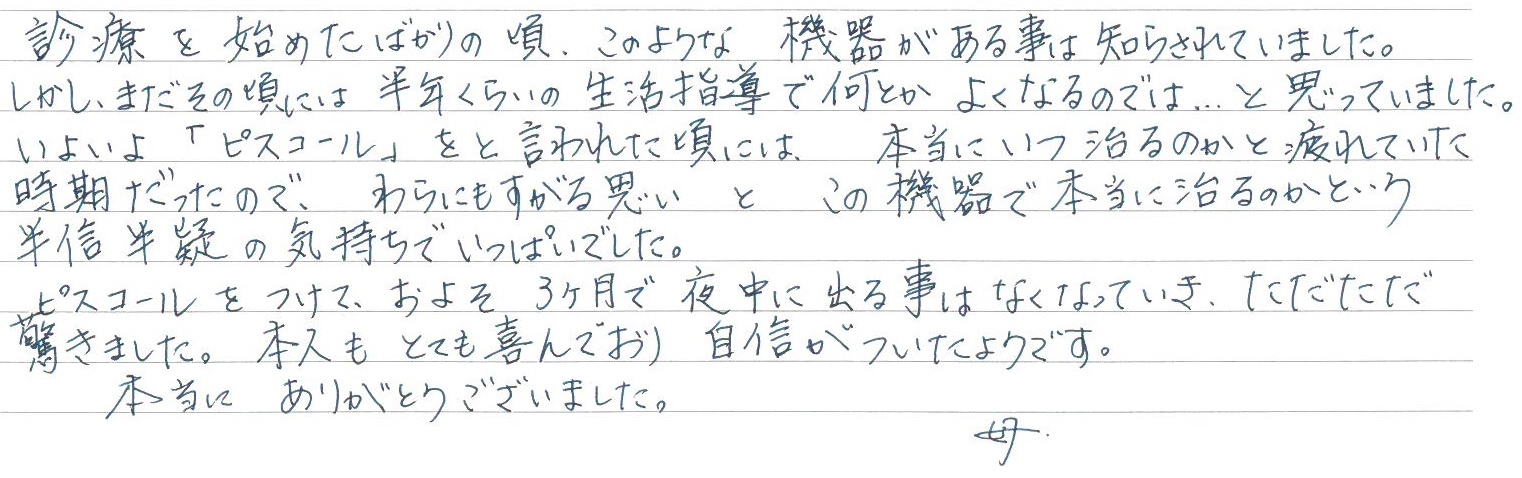 診療を始めたばかりの頃、このような 機器がある事は知らされていました。
しかし、まだその頃には 半年くらいの 生活指導で何とか よくなるのでは…と思っていました。
いよいよ「ピスコール」をと言われた頃には、 本当にいつ治るのかと疲れていた
時期だったので、 わらにもすがる思い と この機器で本当に治るのかという
半信半疑の気持ちでいっぱいでした。
ピスコールをつけて、およそ 3ヶ月で 夜中に出る事はなくなっていき、ただただ
驚きました。本人も とても喜んでおり 自信がついたようです。
本当に ありがとうございました。
母.